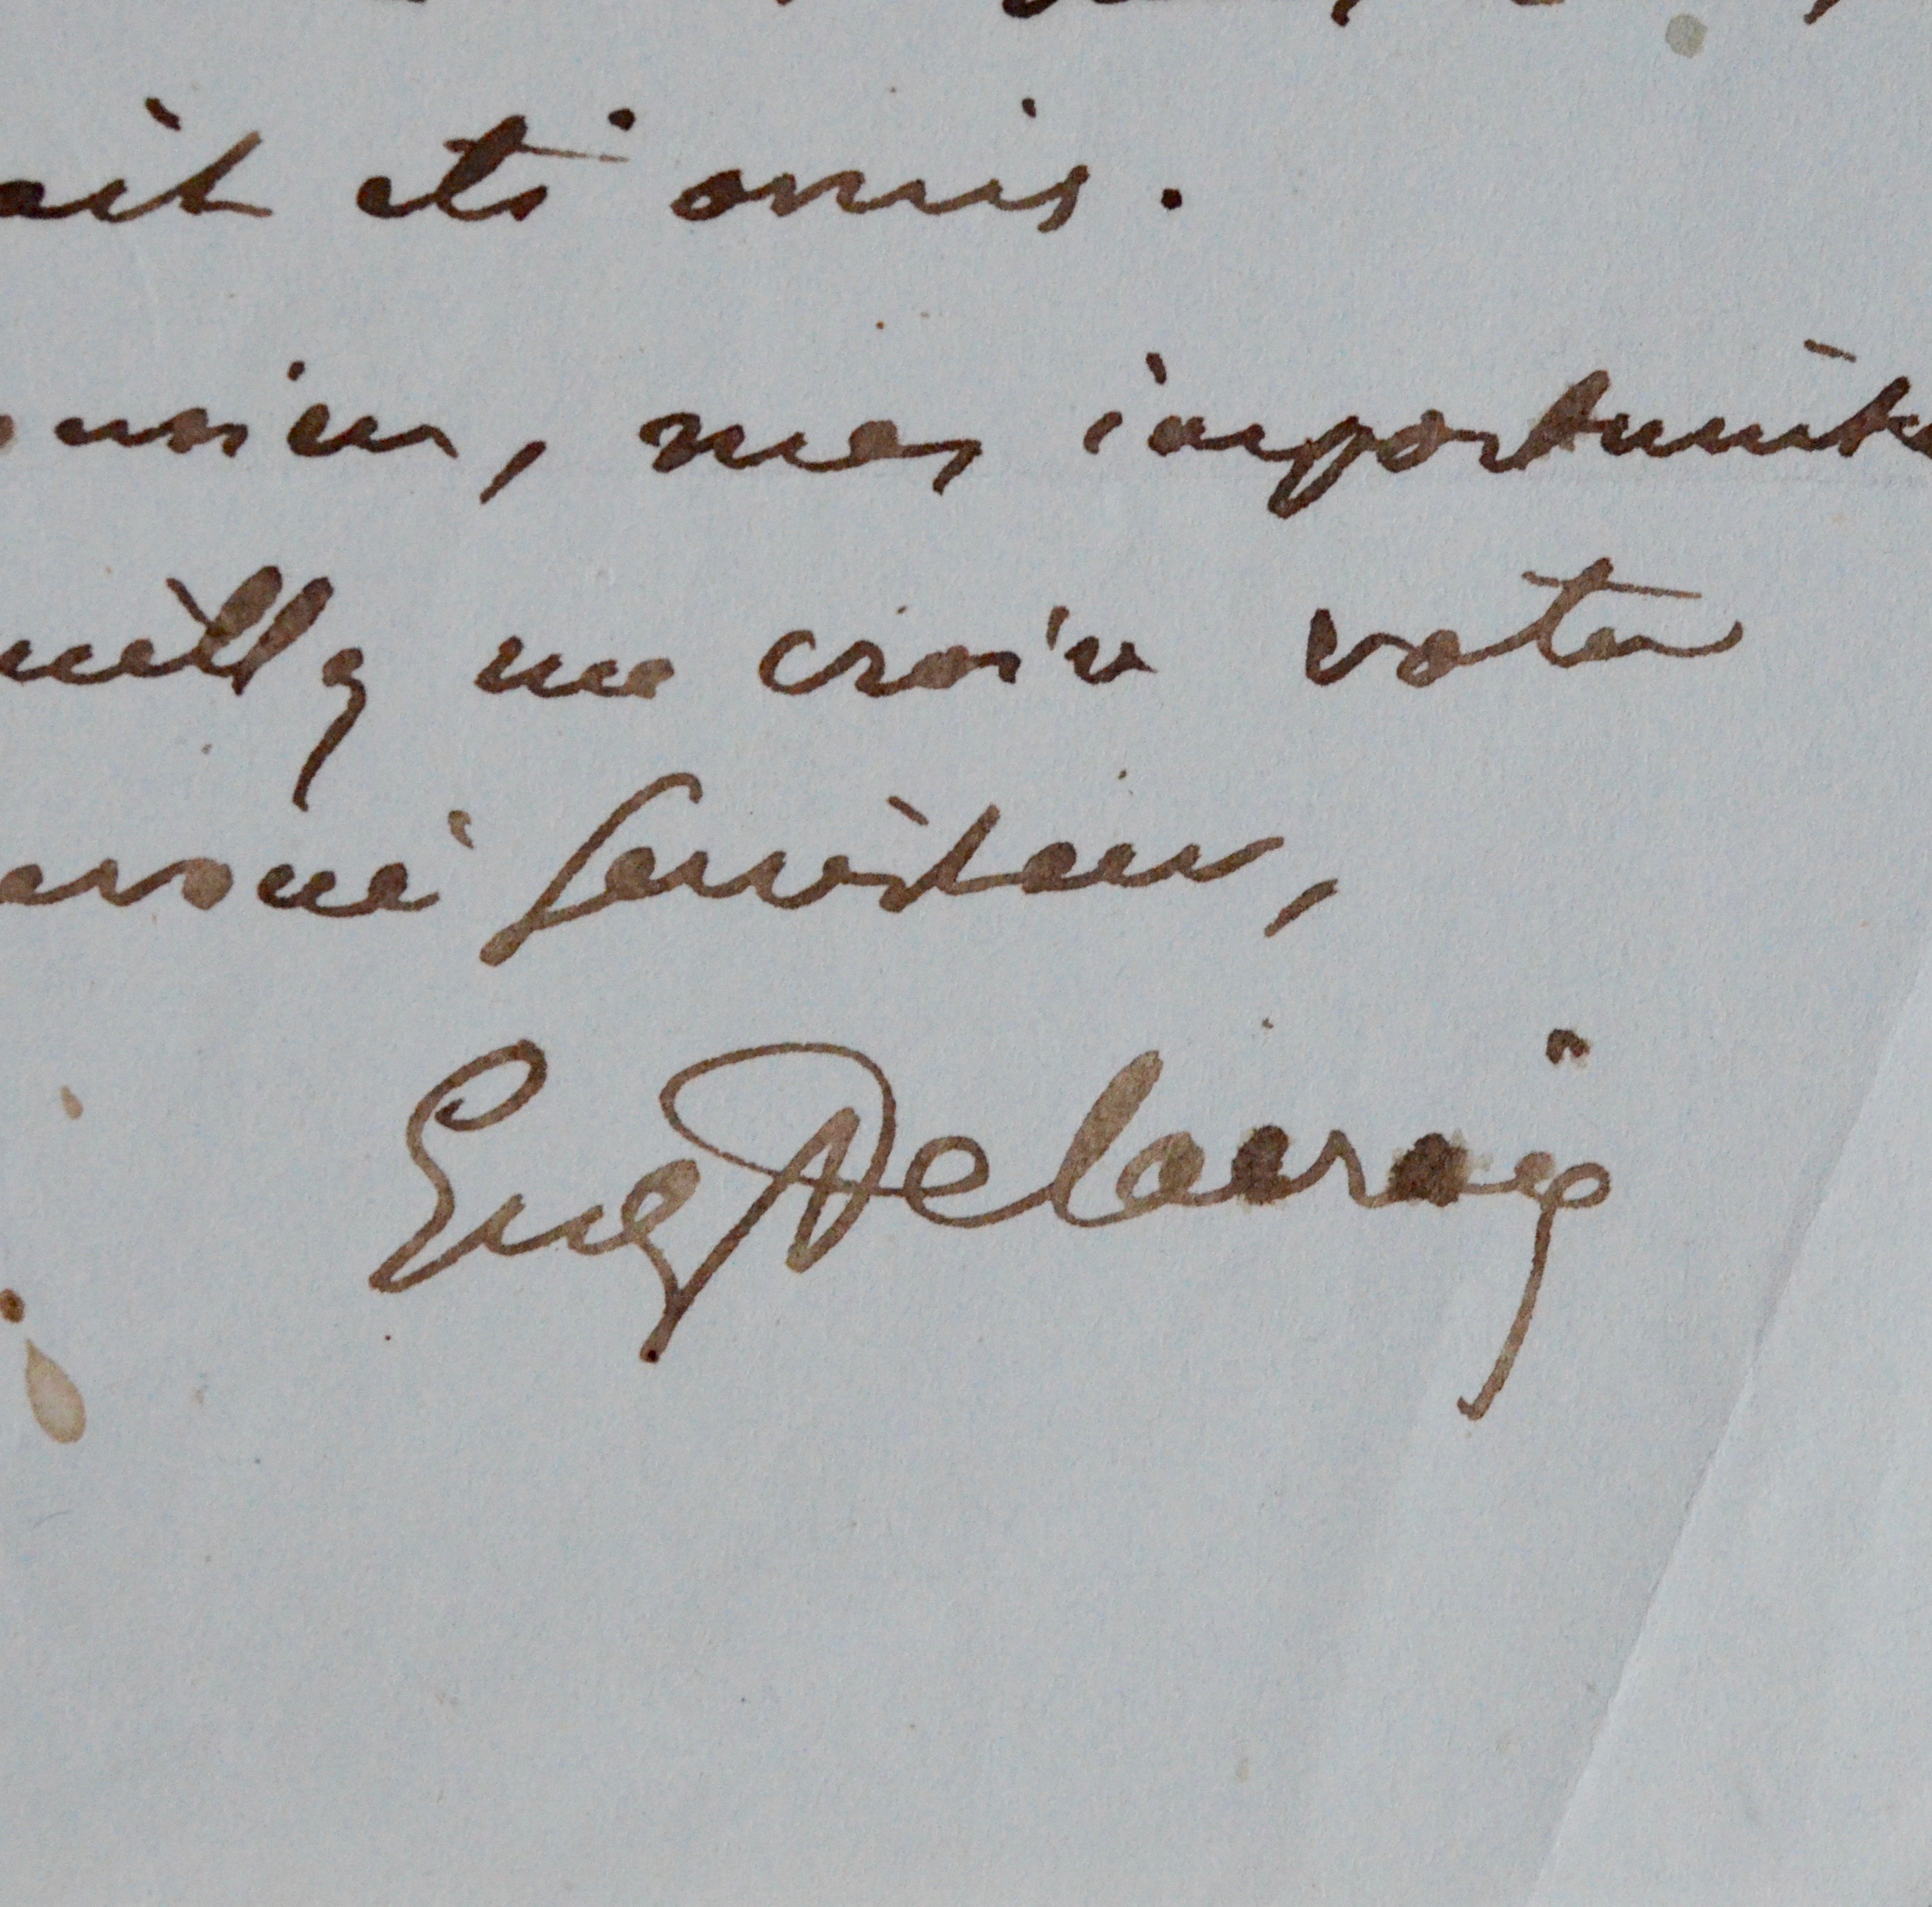 ait été omis.
onsieur, mes importunités
uillez me croire votre
évoué serviteur,
Eug Delacroix